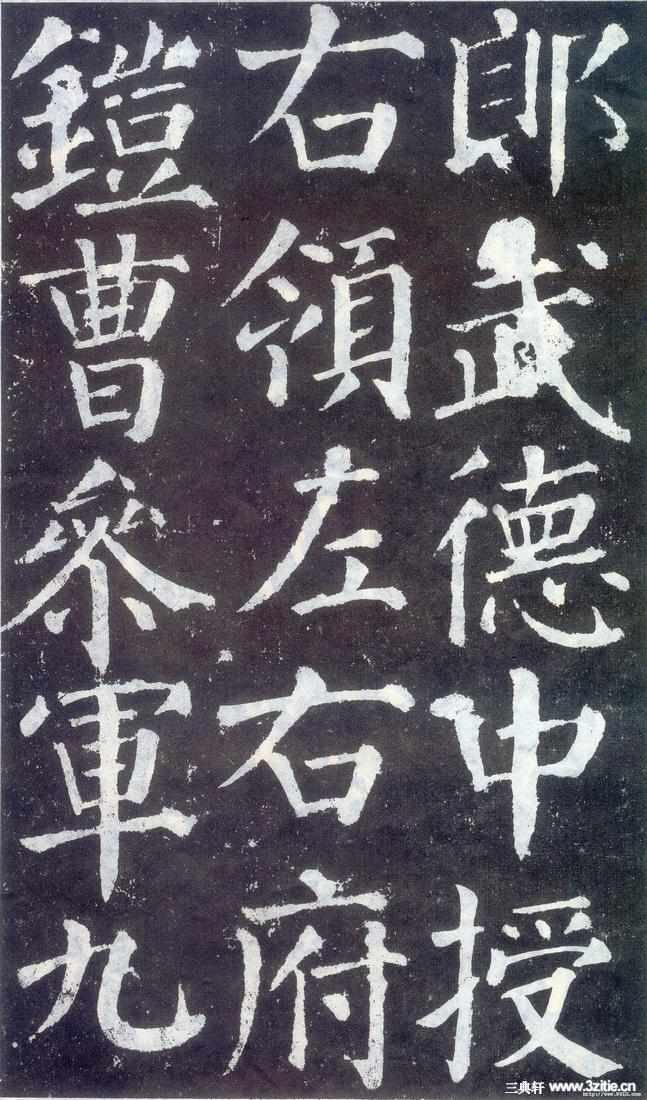 郎武德中授
右領左右府
鎧曹參軍九
三典轩 www.3zitie.cn